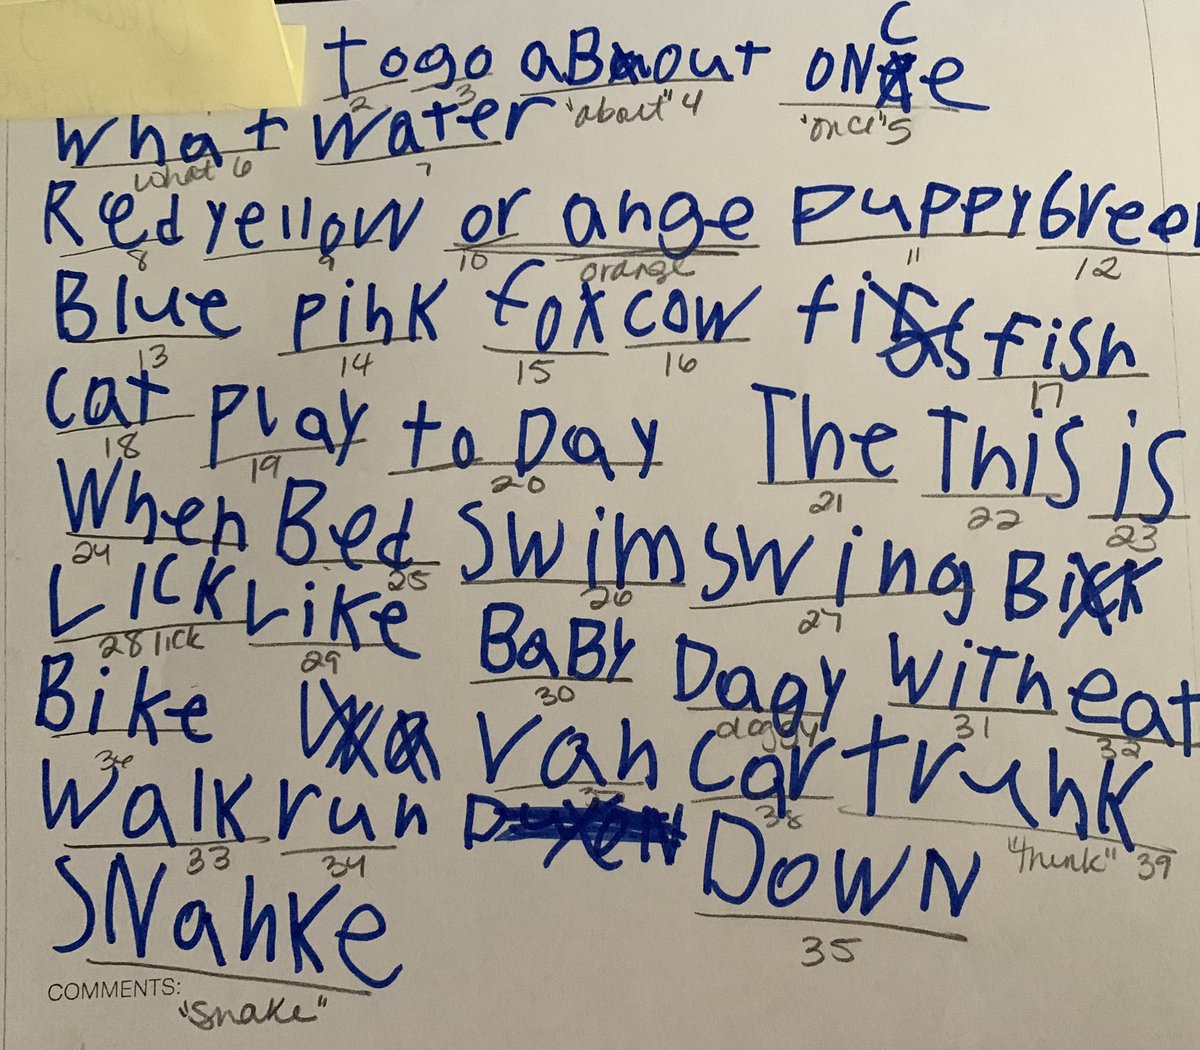 to go aBout oNCe
2 3 "about" 4 "once" 5
what water
what 6 7
Red yellow or ange puppy Green
8 9 10 orange 11 12
Blue pihk fox cow fi fish
13 14 15 16 17
cat play to Day The This is
18 19 20 21 22 23
When Bed Swim swing
24 25 26 27
Lick Like BaBy Dagy with eat
28 lick 29 30 doggy 31 32
Bike Vah car truhk
36 38 "think" 39
walk run DOWN
33 34 35
SNahke
COMMENTS:
"snake"